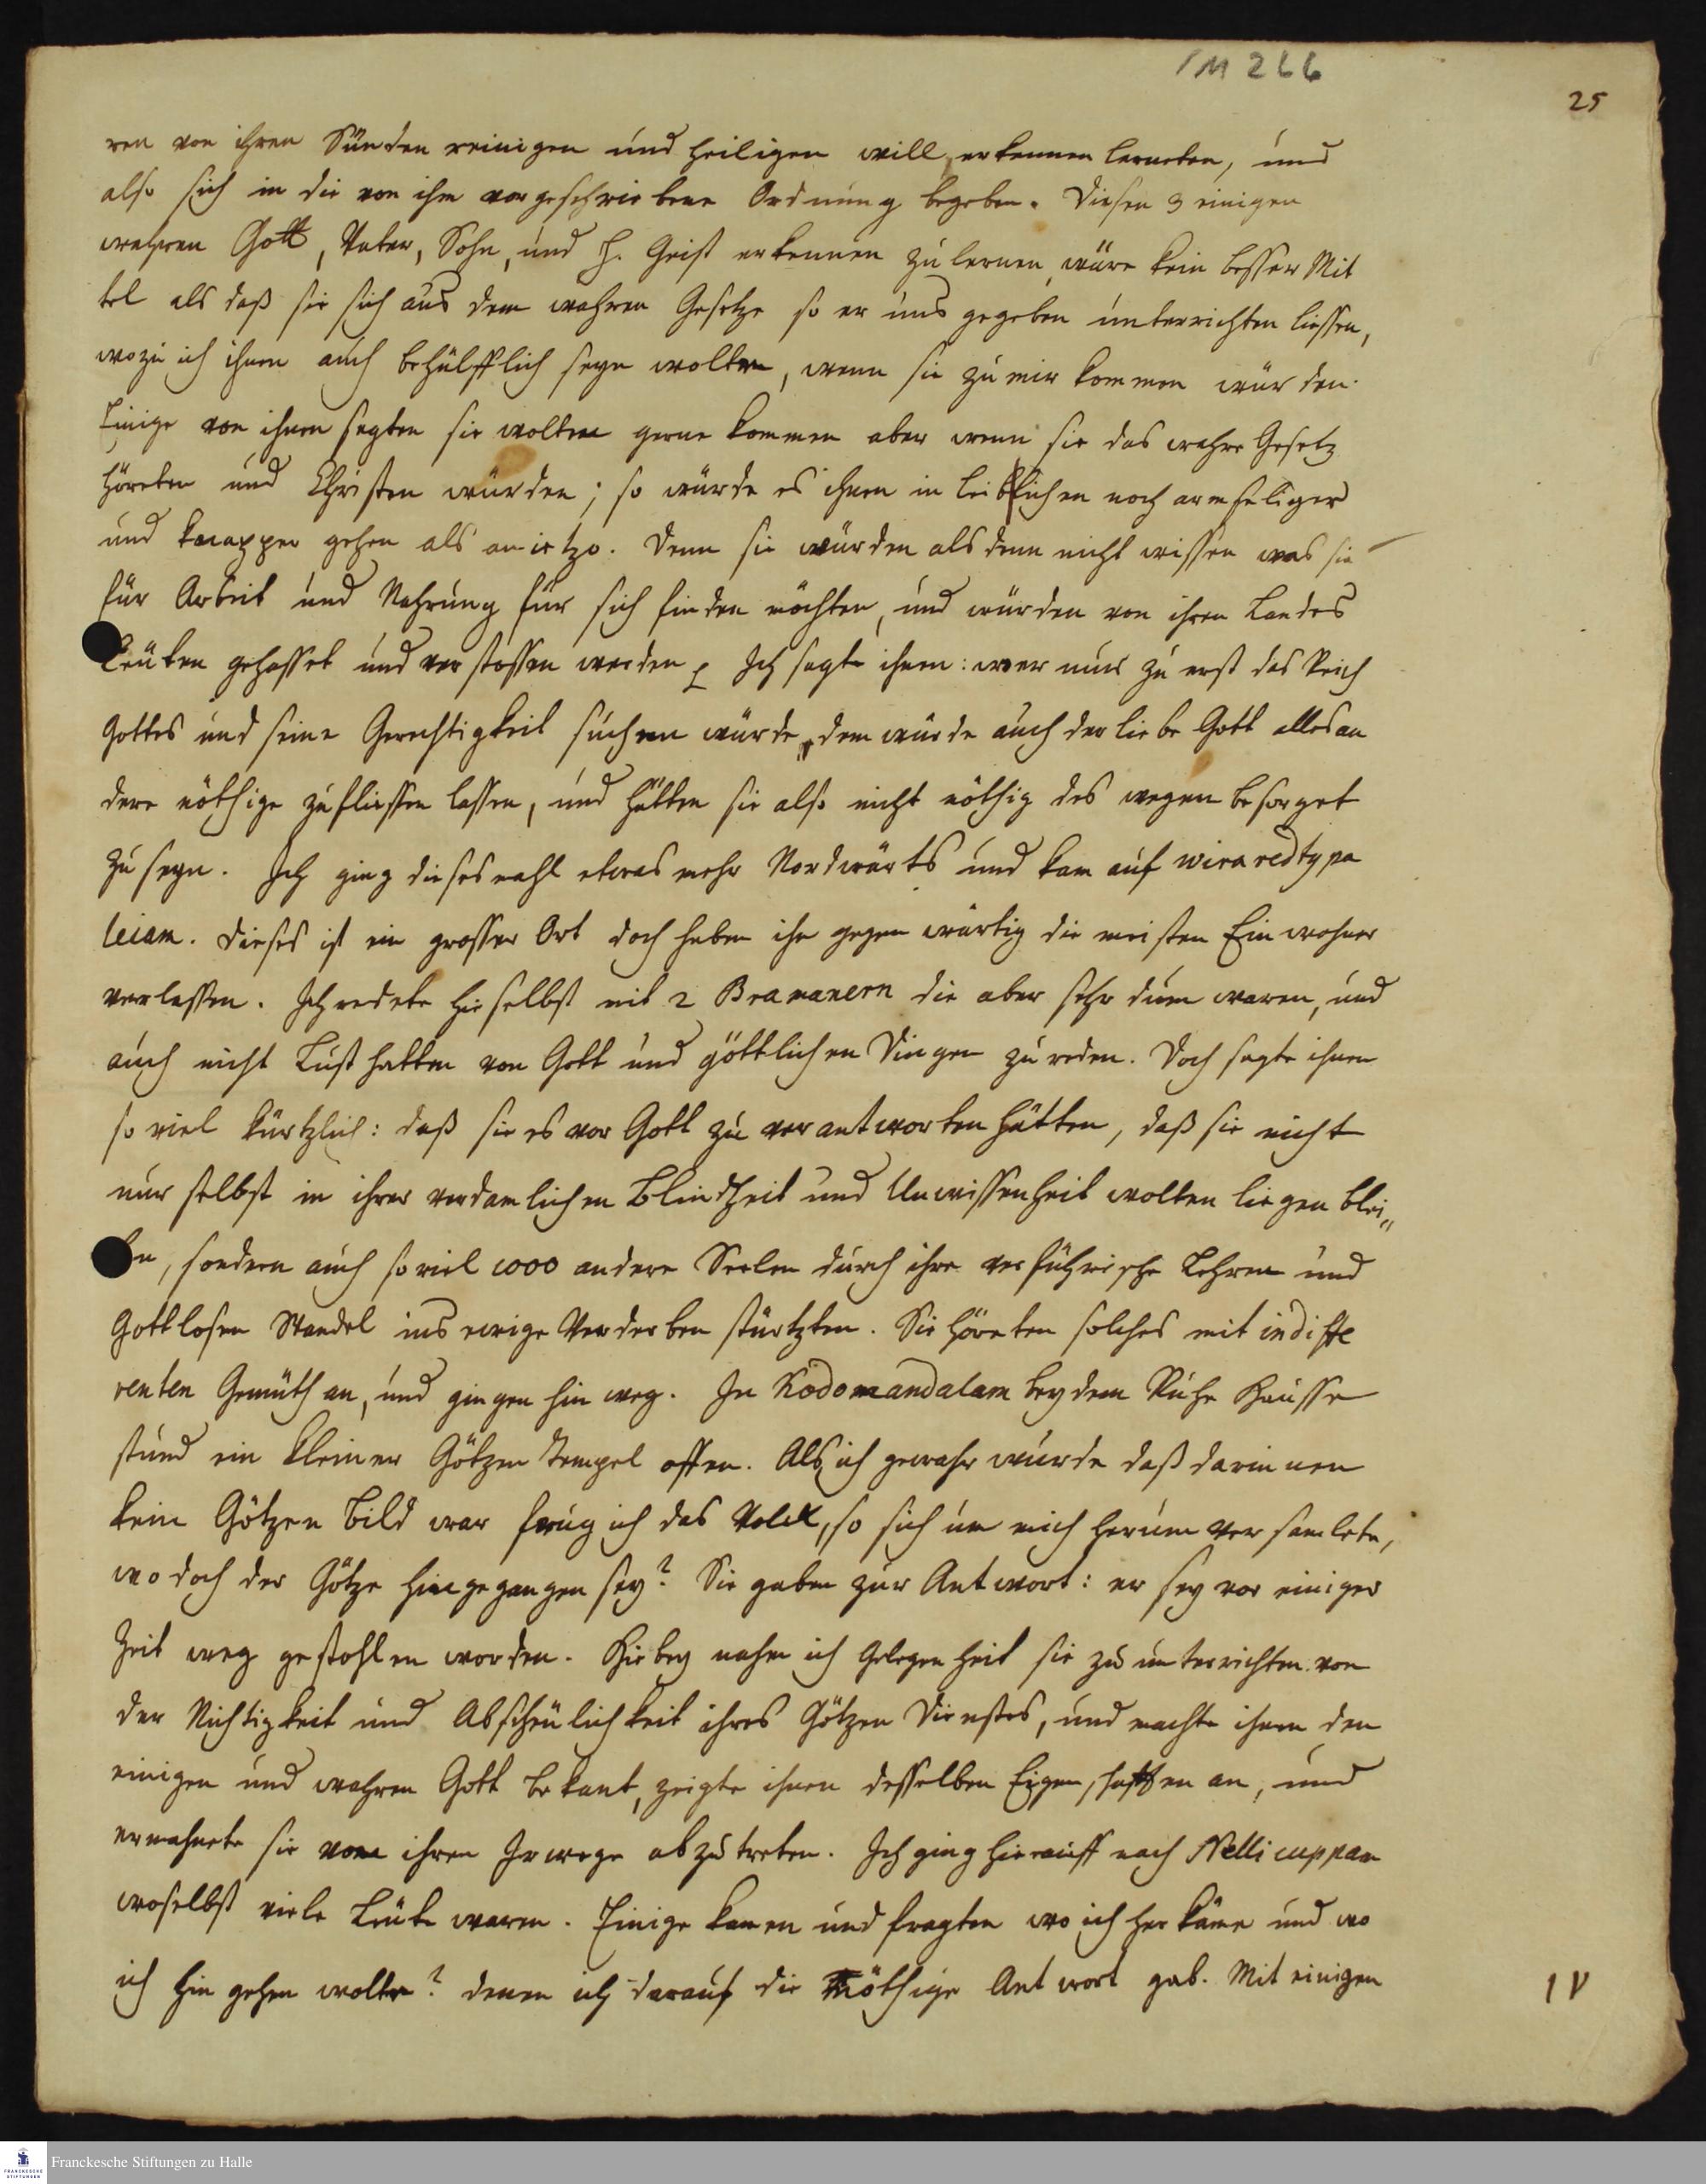 1 M 266
25
ren von ihren Sünden reinigen und heiligen will, erkennen lerneten, und
also sich in die von ihm vorgeschriebene Ordnung begeben. Diesen 3 einigen
wahren Gott, Vater, Sohn, und H. Geist erkennen zu lernen, wäre kein besser Mit
tel als daß sie sich aus dem wahren Gesetze so er uns gegeben unterrichten liessen,
wozu ich ihnen auch behülfflich seyn wolte, wenn sie zu mir kommen würden.
Einige von ihnen sagten sie wolten gerne kommen aber wenn sie das wahre Gesetz
höreten und Christen würden; so würde es ihnen im leiblichen noch armseliger
und knapper gehen als anietzo. Denn sie würden als denn nicht wissen was sie
für Arbeit und Nahrung für sich finden möchten, und würden von ihren Landes
Leuten gehasset und verstossen werden. Ich sagte ihnen: wer nur zu erst das Reich
Gottes und seine Gerechtigkeit suchen würde, dem würde auch der liebe Gott alles an
dere nöthige zufliessen lassen, und hätten sie also nicht nöthig des wegen besorget
zu seyn. Ich ging dieses mahl etwas mehr Nordwärts und kam auf wiraredtypa
leiam. Dieses ist ein grosser Ort doch haben ihn gegenwärtig die meisten Einwohner
verlassen. Ich redete hieselbst mit 2 Bramanern die aber sehr dum waren, und
auch nicht Lust hatten von Gott und göttlichen Dingen zu reden. Doch sagte ihnen
so viel kürtzlich: daß sie es vor Gott zu verantworten hätten, daß sie nicht
nur selbst in ihrer verdamlichen Blindheit und Unwissenheit wolten liegen blei„
ben, sondern auch so viel 1000 andere Seelen durch ihre verführische Lehren und
Gottlosen Wandel ins ewige Verderben stürtzten. Sie höreten solches mit indiffe
renten Gemüth an, und gingen hinweg. In Kodomandalam bey dem Ruhe Hausse
stund ein kleiner Götzen Tempel offen. Als ich gewahr wurde daß darinnen
kein Götzen Bild war frug ich das Volck, so sich um mich herum versamlete,
wo doch der Götze hingegangen sey? Sie gaben zur Antwort: er sey vor einiger
Zeit weg gestohlen worden. Hiebey nahm ich Gelegenheit sie zu unterrichten von
der Nichtigkeit und Abscheulichkeit ihres Götzen Dienstes, und machte ihnen den
einigen und wahren Gott bekant, zeigte ihnen desselben Eigenschafften an, und
ermahnete sie von ihren Irwege abzutreten. Ich ging hierauff nach Nellicuppam
woselbst viele Leute waren. Einige kamen und fragten wo ich her käme und wo
ich hin gehen wolte? denen ich darauf die nöthige Antwort gab. Mit einigen
IV
Franckesche Stiftungen zu Halle